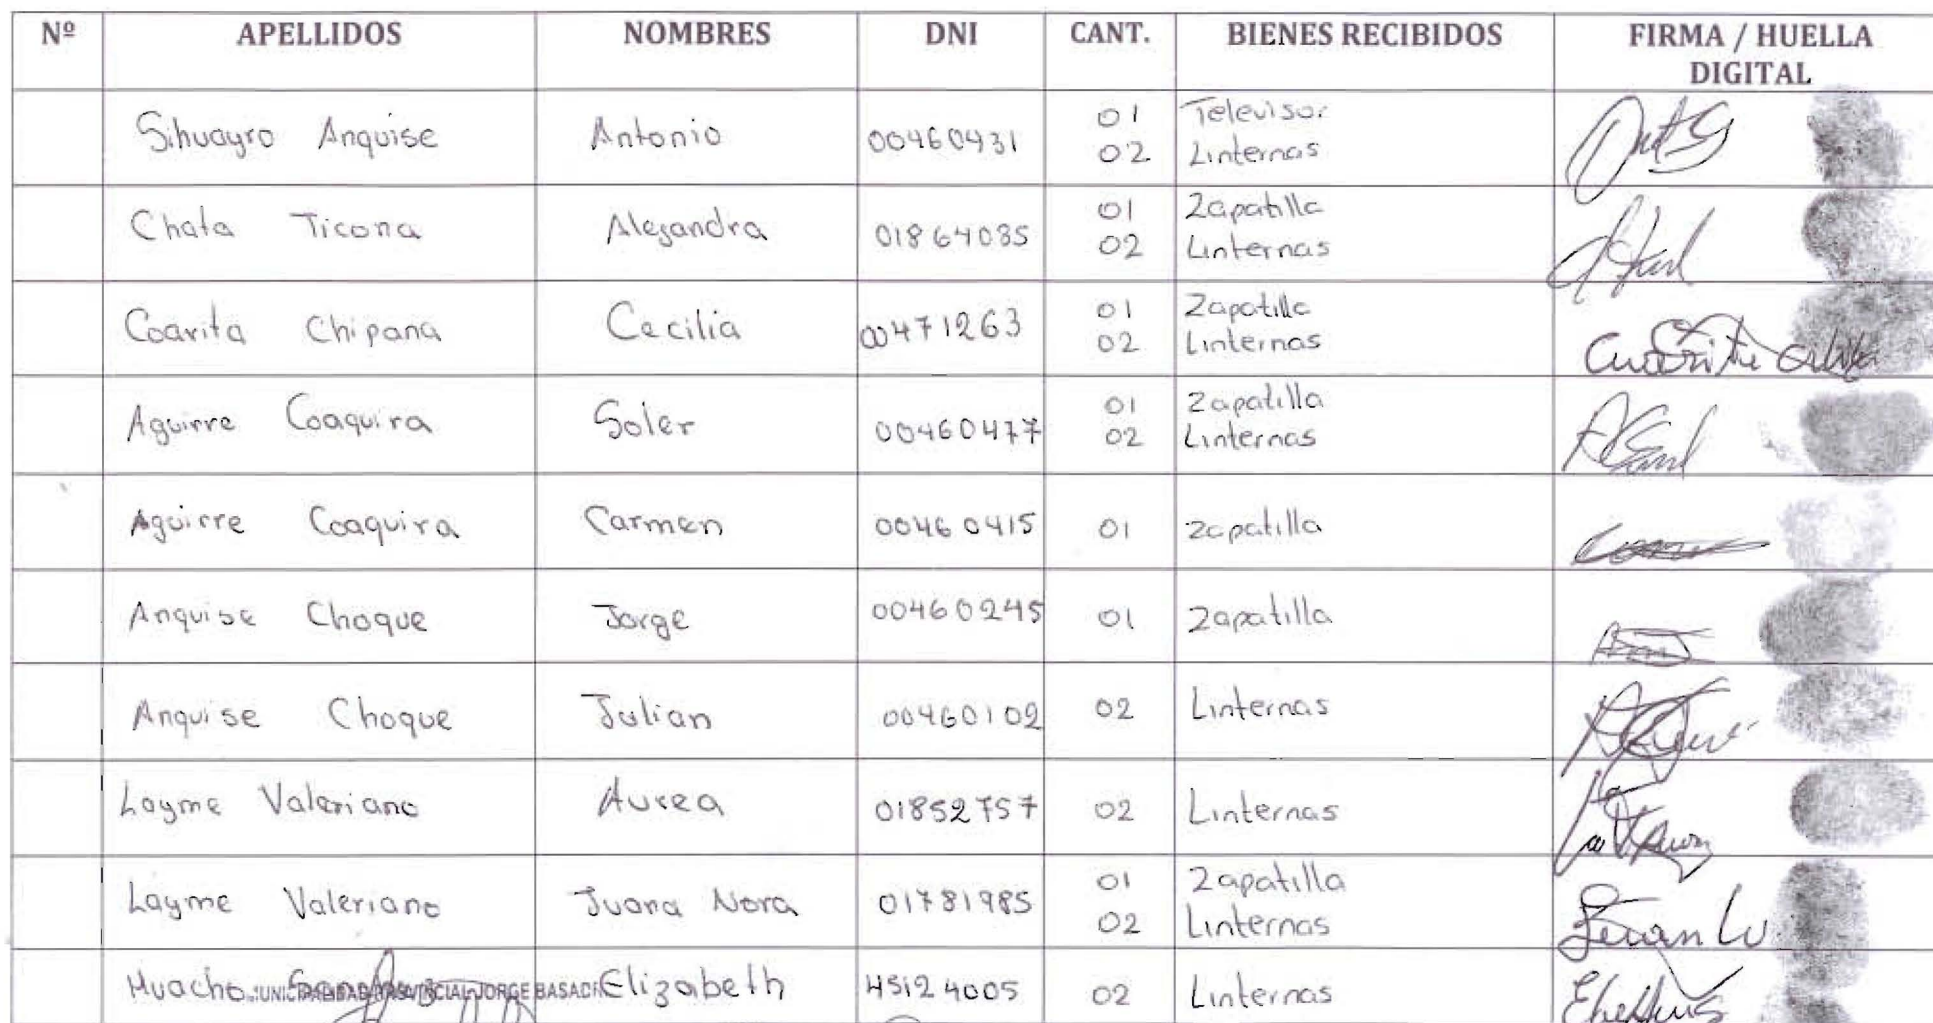 Nº APELLIDOS NOMBRES DNI CANT. BIENES RECIBIDOS FIRMA / HUELLA DIGITAL
Sihuayro Anquise Antonio 00460431 01 Televisor
02 Linternas
Chata Ticona Alejandra 01864035 01 Zapatilla
02 Linternas
Coarita Chipana Cecilia 00471263 01 Zapatilla
02 Linternas
Aguirre Coaquira Soler 00460477 01 Zapatilla
02 Linternas
Aguirre Coaquira Carmen 00460415 01 zapatilla
Anquise Choque Jorge 00460245 01 Zapatilla
Anquise Choque Julian 00460102 02 Linternas
Layme Valeriano Aurea 01852757 02 Linternas
Layme Valeriano Juana Nora 01781985 01 Zapatilla
02 Linternas
Huacho Elizabeth 45124005 02 Linternas
JORGE